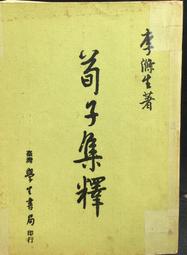 李滌生著
荀子集釋
臺灣 學生書局 印行